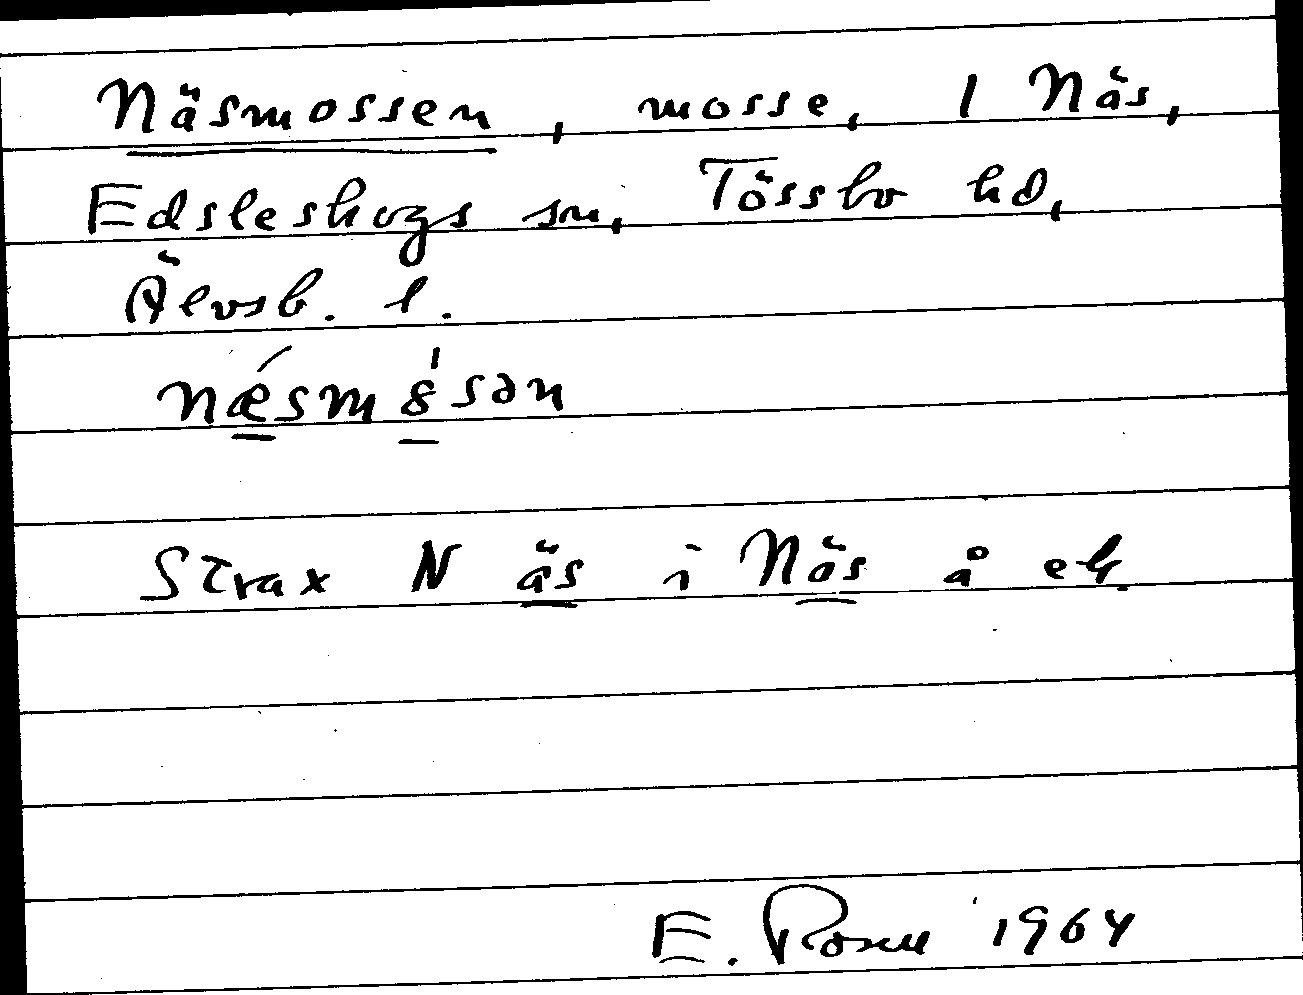 Näsmossen, mosse, 1 Näs,
Edsleskogs sn, Tössbo hd,
Älvsb. l.
næ´smȣ̀sən
Strax N äs i Näs å ek.
E. Rosell 1964